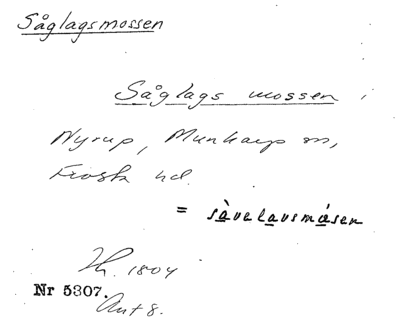 Såglagsmossen
Såglags mossen
Nyrup, Munkarp sn,
Frosta hd.
= sàvelavsmásen
Th. 1804
Nr 5307.
Ant 8.